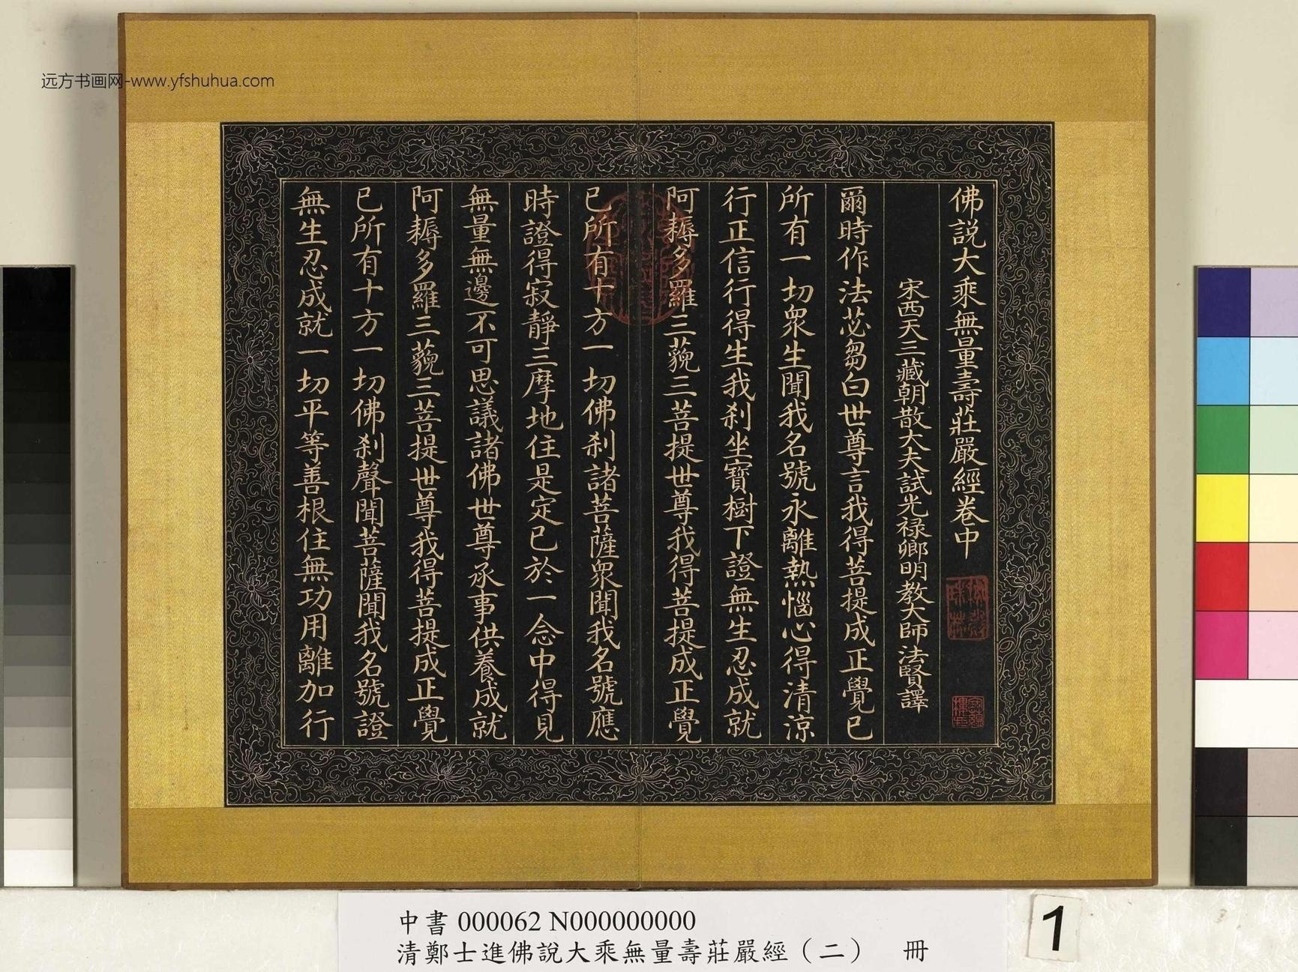 远方书画网-www.yfshuhua.com
佛說大乘無量壽莊嚴經卷中
宋西天三藏朝散大夫試光祿卿明教大師法賢譯
爾時作法苾芻白世尊言我得菩提成正覺已
所有一切眾生聞我名號永離熱惱心得清涼
行正信行得生我剎坐寶樹下證無生忍成就
阿耨多羅三藐三菩提世尊我得菩提成正覺
已所有十方一切佛剎諸菩薩眾聞我名號應
時證得寂靜三摩地住是定已於一念中得見
無量無邊不可思議諸佛世尊承事供養成就
阿耨多羅三藐三菩提世尊我得菩提成正覺
已所有十方一切佛剎聲聞菩薩聞我名號證
無生忍成就一切平等善根住無功用離加行
中書 000062 N000000000
清鄭士進佛說大乘無量壽莊嚴經（二） 冊
1